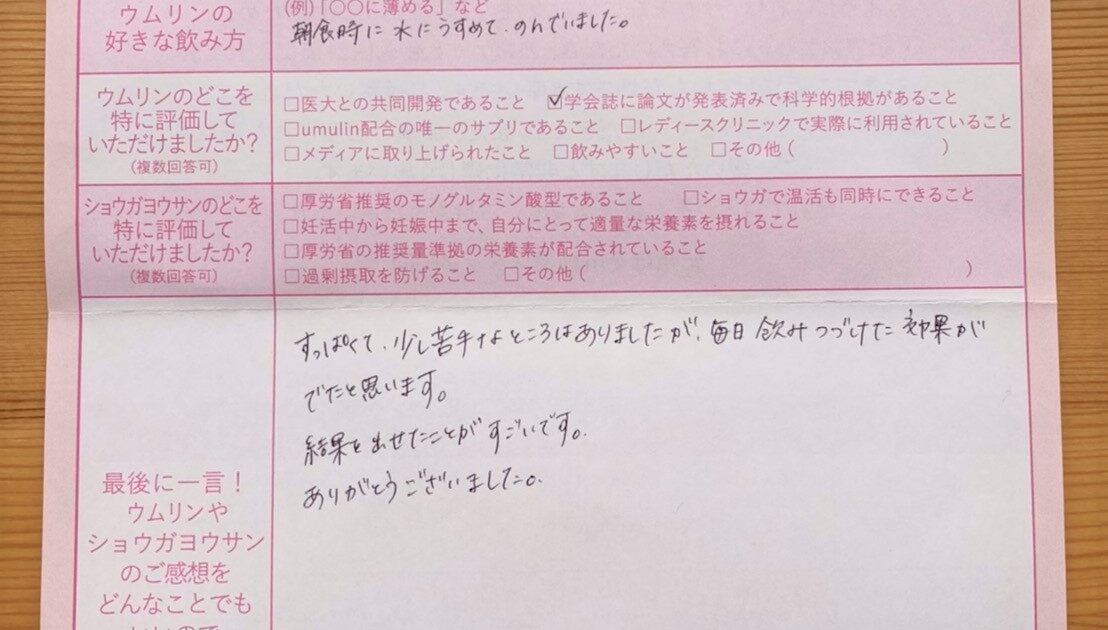 ウムリンの
好きな飲み方
(例)「〇〇に薄める」など
朝食時に水にうすめて、のんでいました。
ウムリンのどこを
特に評価して
いただけましたか?
(複数回答可)
□医大との共同開発であること ☑学会誌に論文が発表済みで科学的根拠があること
□umulin配合の唯一のサプリであること □レディースクリニックで実際に利用されていること
□メディアに取り上げられたこと □飲みやすいこと □その他( )
ショウガヨウサンのどこを
特に評価して
いただけましたか?
(複数回答可)
□厚労省推奨のモノグルタミン酸型であること □ショウガで温活も同時にできること
□妊活中から妊娠中まで、自分にとって適量な栄養素を摂れること
□厚労省の推奨量準拠の栄養素が配合されていること
□過剰摂取を防げること □その他( )
最後に一言!
ウムリンや
ショウガヨウサン
のご感想を
どんなことでも
すっぱくて、少し苦手なところはありましたが、毎日飲みつづけた効果が
でたと思います。
結果を出せたことがすごいです。
ありがとうございました。